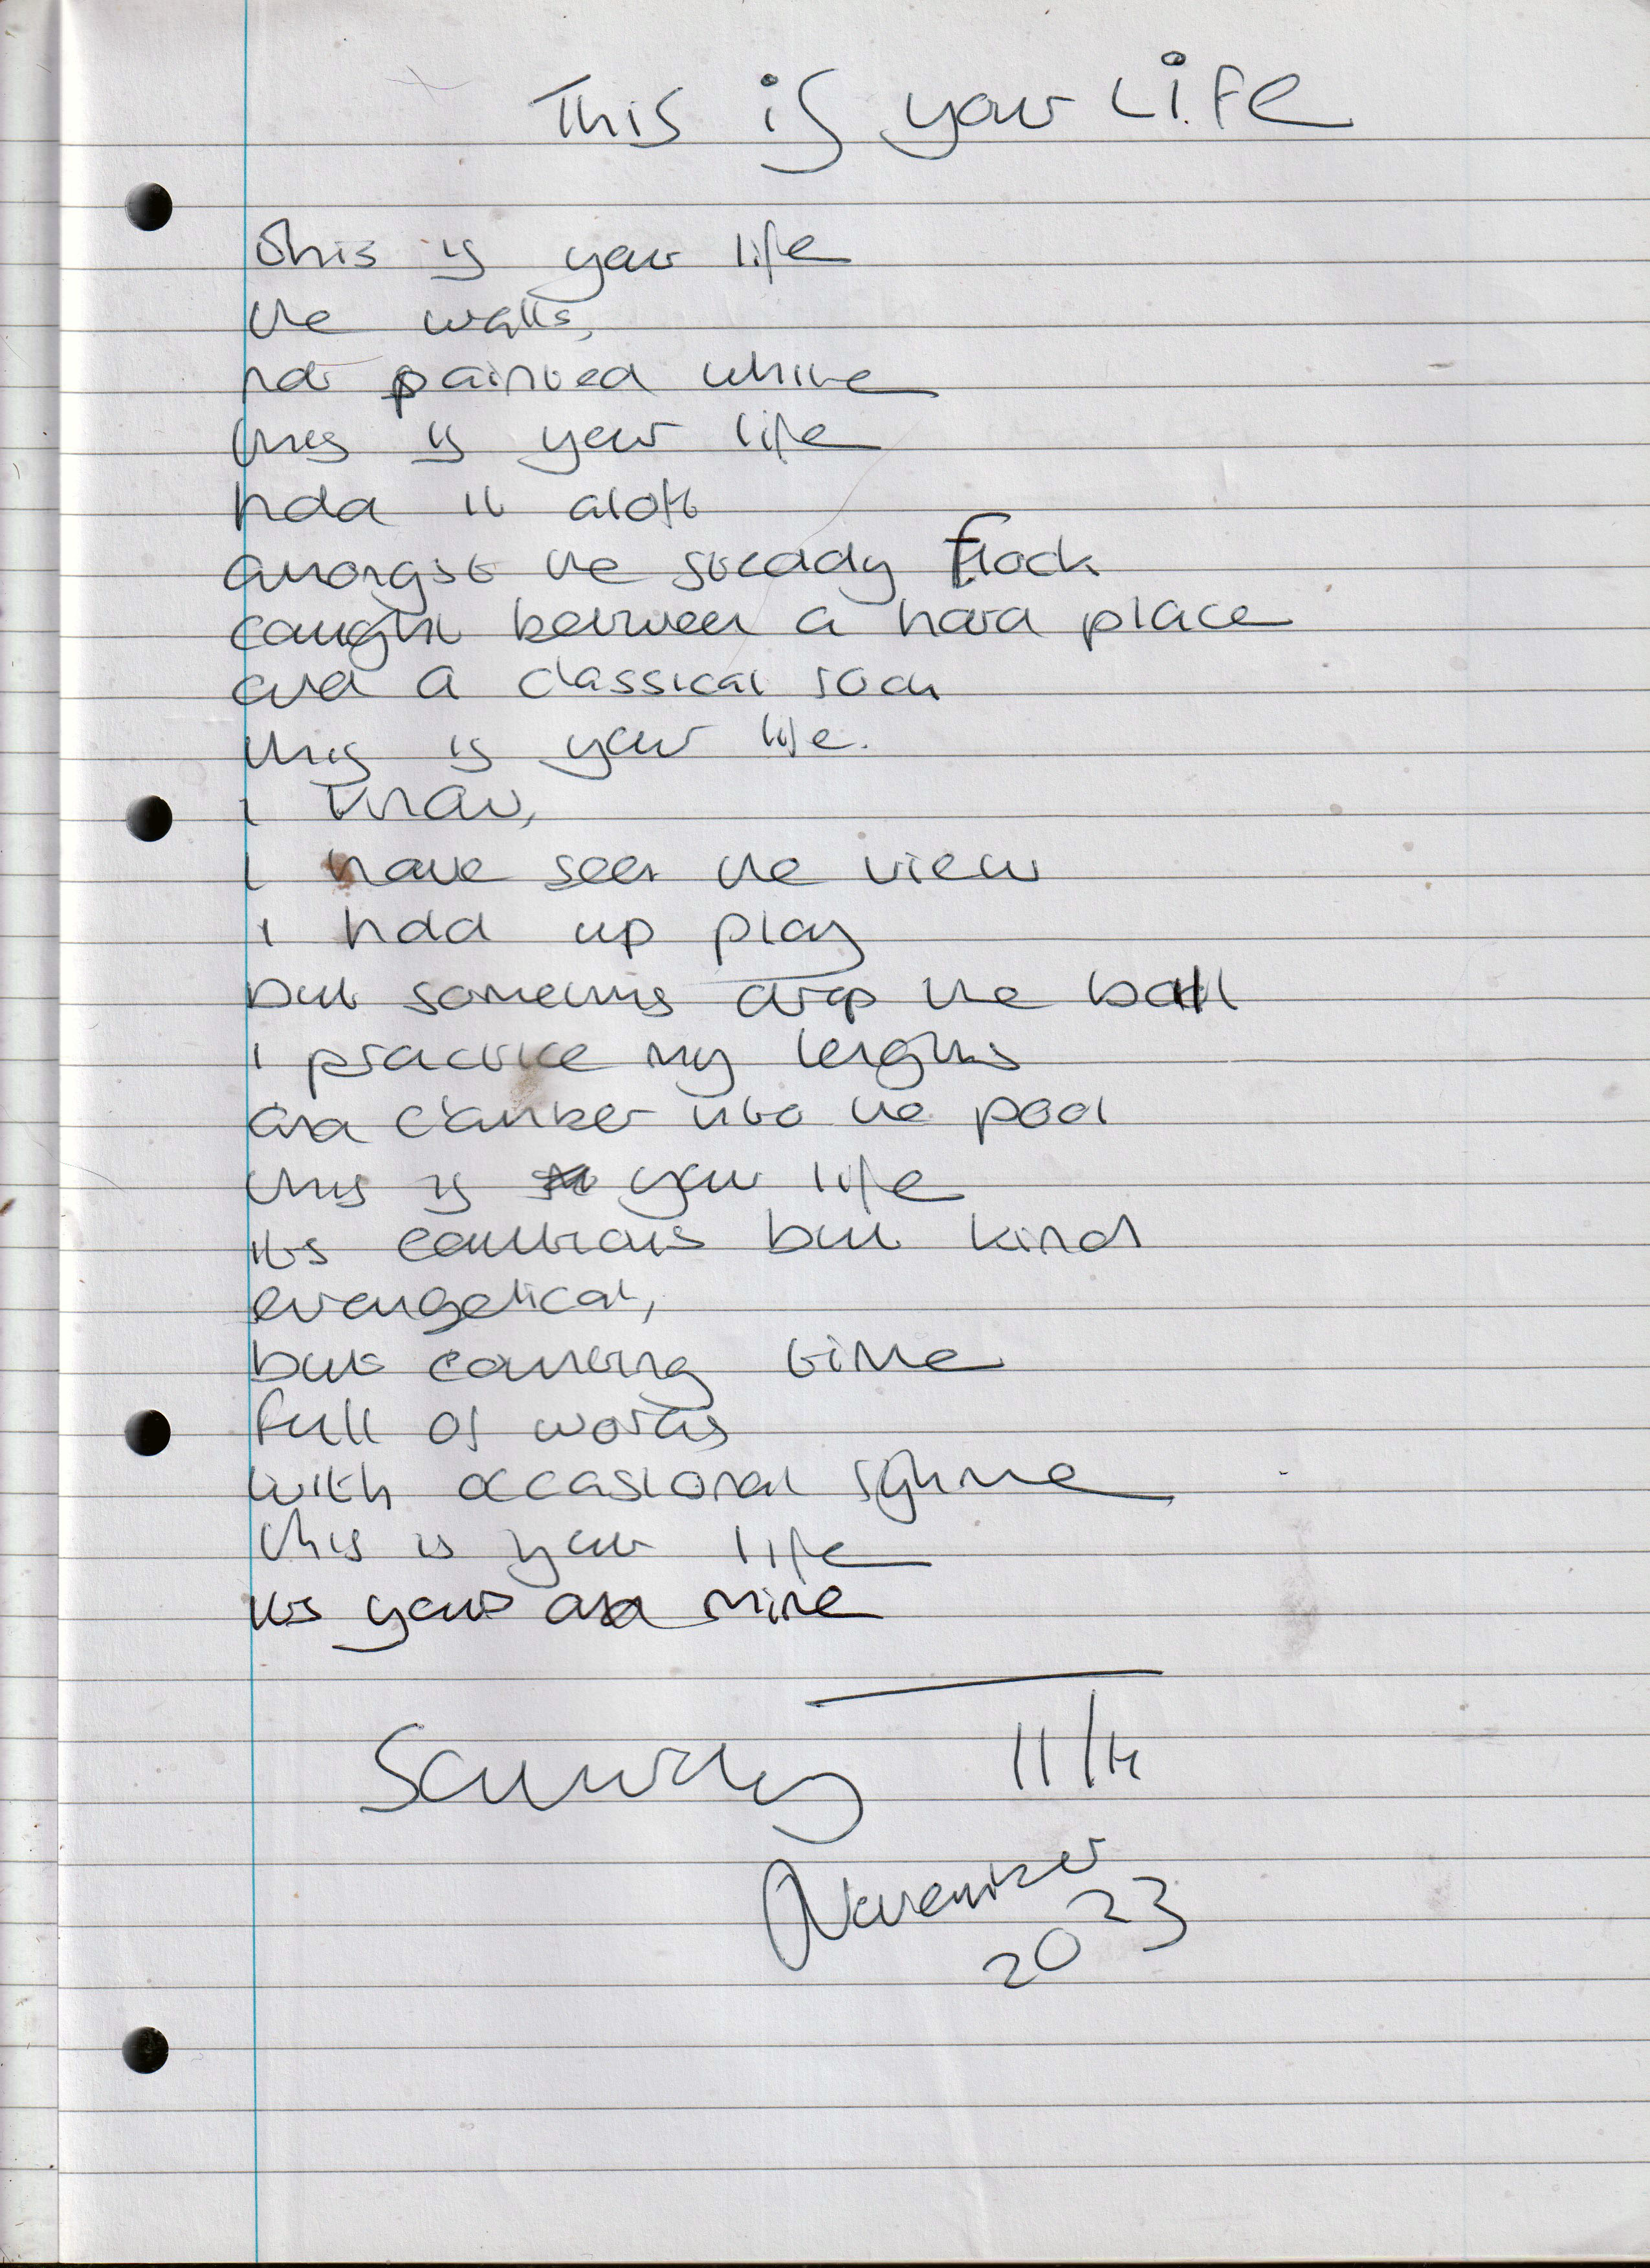 This is your Life
This is your life
the walls,
not painted white
this is your life
hold it aloft
amongst the steady flock
caught between a hard place
and a classical rock
this is your life.
I know,
I have seen the view
I hold up play
but sometimes drop the ball
I practice my lengths
and clamber into the pool
this is your life
its cautious but kind
evangelical,
but counting time
full of words
with occasional rhyme
this is your life
its yours and mine
11/14
November
2023